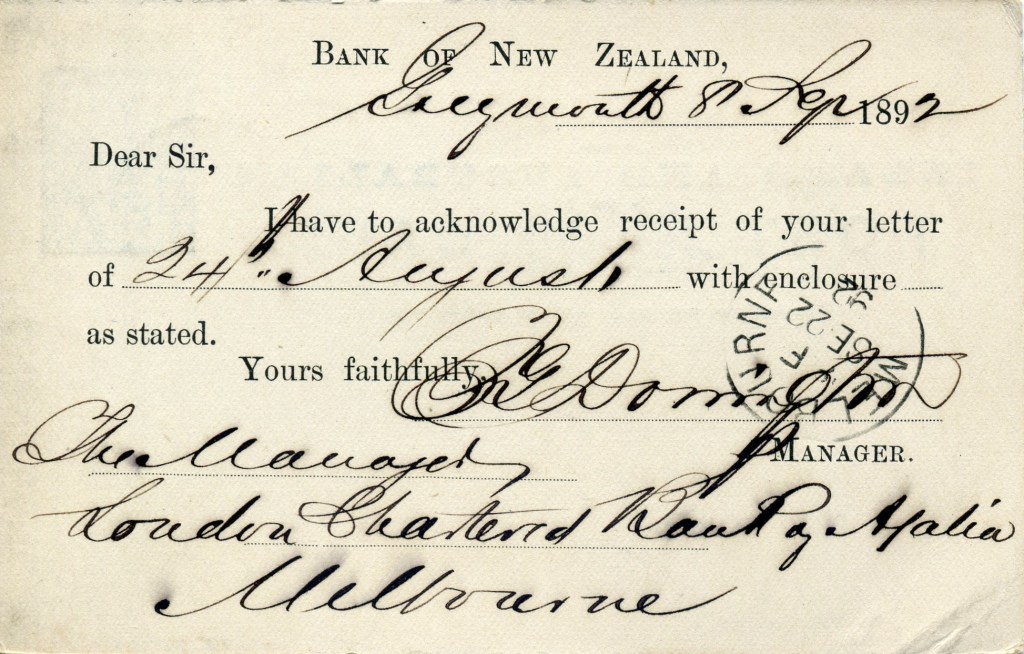 BANK OF NEW ZEALAND,
Greymouth 8 Sep 1892
Dear Sir,
I have to acknowledge receipt of your letter
of 24th August with enclosure
as stated.
Yours faithfully,
MANAGER.
The Manager
London Chartered Bank of A/alia
Melbourne
MELBOURNE
F
SE 22
92